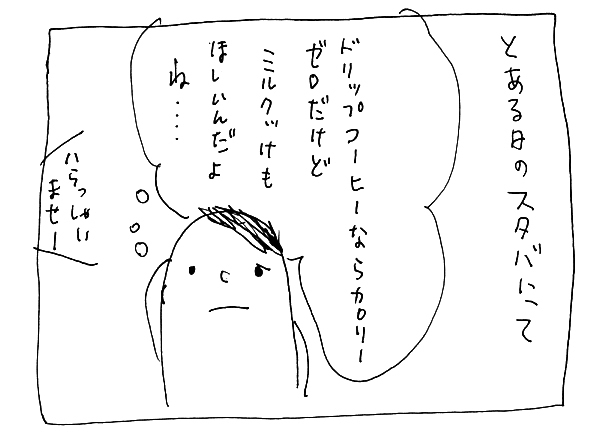 とある日のスタバにて
ドリップコーヒーならカロリー
ゼロだけど
ミルクッけも
ほしいんだよ
ね……
いらっしゃい
ませー